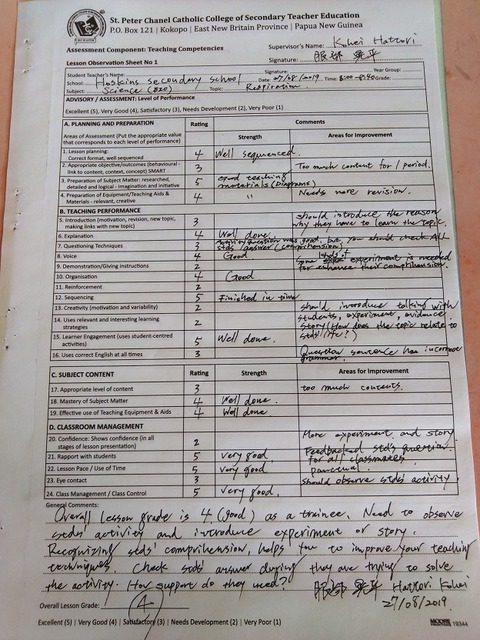 St. Peter Chanel Catholic College of Secondary Teacher Education
P.O. Box 121 | Kokopo | East New Britain Province | Papua New Guinea
Assessment Component: Teaching Competencies
Supervisor's Name: Kohei Hattori
Lesson Observation Sheet No 1
Signature: 服部 晃平
Student Teacher's Name: Signature: Year Group:
School: Hoskins secondary school Date: 27/08/2019 Time: 8:00-8:40 Grade:
Subject: Science (820) Topic: Respiration
ADVISORY / ASSESSMENT: Level of Performance
Excellent (5), Very Good (4), Satisfactory (3), Needs Development (2), Very Poor (1)
A. PLANNING AND PREPARATION Rating Comments
Areas of Assessment (Put the appropriate value that corresponds to each level of performance) Strength Areas for Improvement
1. Lesson planning: Correct format, well sequenced 4 Well sequenced.
2. Appropriate objective/outcomes (behavioural - link to content, context, concept) SMART 3 Too much content for 1 period.
3. Preparation of Subject Matter: researched, detailed and logical - imagination and initiative 5 Good teaching materials (Diagrams)
4. Preparation of Equipment/Teaching Aids & Materials - relevant, creative 4 " Needs more revision.
B. TEACHING PERFORMANCE
5. Introduction (motivation, revision, new topic, making links with new topic) 3 should introduce the reason why they have to learn the topic.
6. Explanation 4 Well done.
7. Questioning Techniques 3 question was good, but you should check All stds' answer (comprehension)
8. Voice 4 Good
9. Demonstration/Giving instructions 2 experiment is needed for enhance their comprihension.
10. Organisation 4 Good
11. Reinforcement 2
12. Sequencing 5 Finished in time
13. Creativity (motivation & variability) 2 should introduce talking with students, experiment, evidence
14. Uses relevant and interesting learning strategies 2 story (How does the topic relate to stds' life?)
15. Learner Engagement (uses student-centred activities) 5 Well done.
16. Uses correct English at all times 3 Question sentence has incorrect grammar.
C. SUBJECT CONTENT Rating Strength Areas for Improvement
17. Appropriate level of content 3 too much contents.
18. Mastery of Subject Matter 4 Well done.
19. Effective use of Teaching Equipment & Aids 4 Well done
D. CLASSROOM MANAGEMENT
20. Confidence: Shows confidence (in all stages of lesson presentation) 2 More experiment and story
21. Rapport with students 5 very good Feedbacked stds question for all classmates
22. Lesson Pace / Use of Time 5 very good Punctual
23. Eye contact 3 should observe stds' activity
24. Class Management / Class Control 5 very good.
General Comments:
Overall lesson grade is 4 (good) as a trainee. Need to observe
stds' activity and introduce experiment or story.
Recognizing stds' comprihension, helps you to improve your teaching
techniques. Check stds' answer during they are trying to solve
the activity. How support do they need? 服部 晃平 Hattori Kohei
27/08/2019
Overall Lesson Grade: 4
Excellent (5) | Very Good (4) | Satisfactory (3) | Needs Development (2) | Very Poor (1)
19344